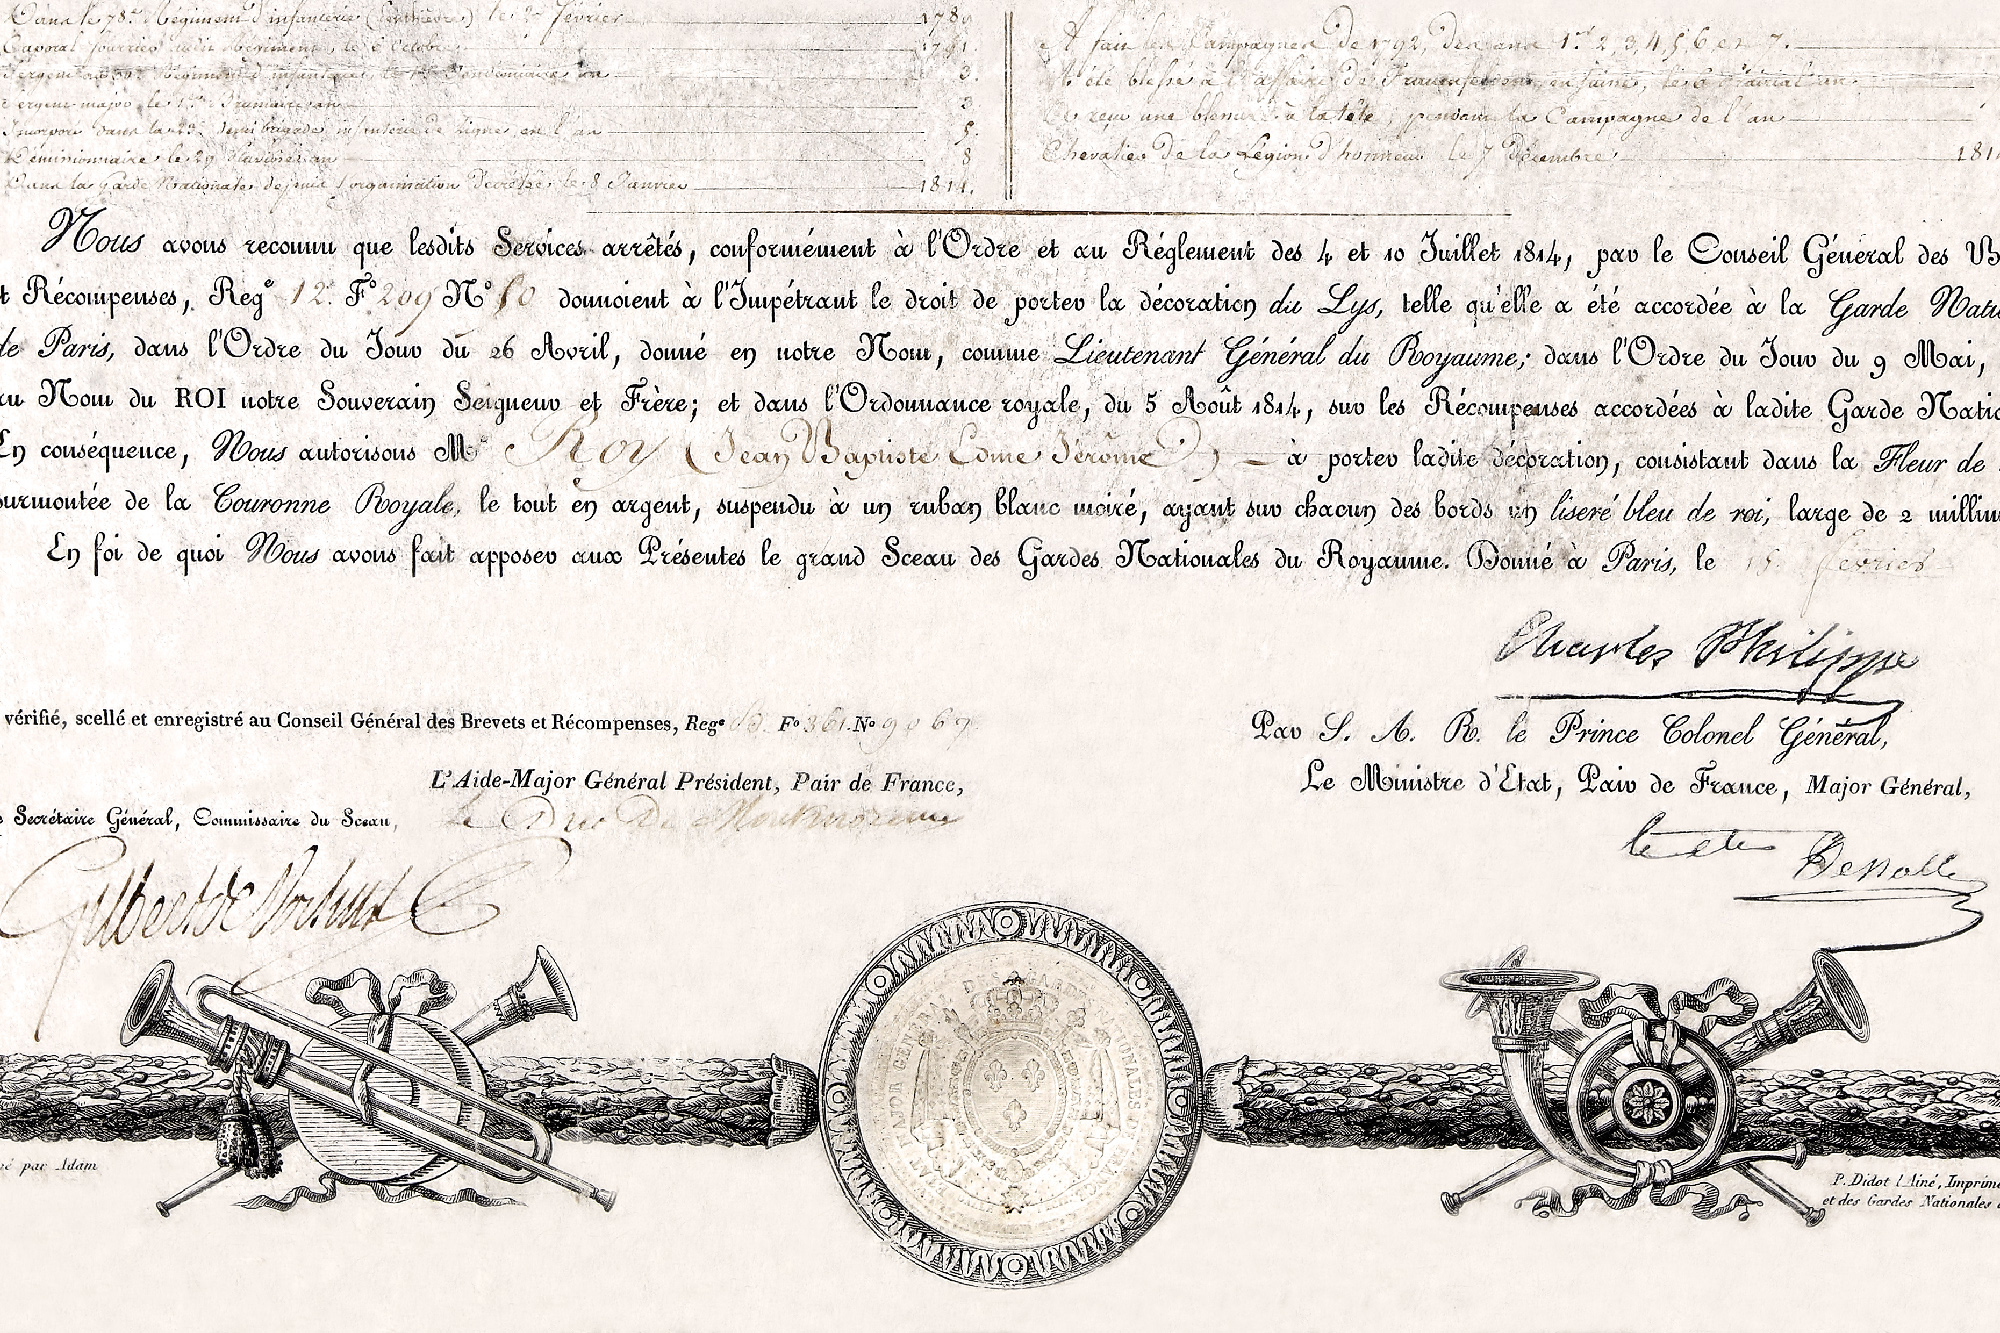 Dans le 78e Régiment d'infanterie le 27 février 1789
Caporal fourrier audit Régiment, le 6 Octobre 1791.
Sergent au Régiment d'infanterie, le Vendémiaire an 3.
Sergent major le Brumaire an 3.
Incorporé dans la 23e demi brigade infanterie de ligne, en l'an 5.
le 29 an 8
Dans la Garde Nationale depuis l'organisation décrétée, le 8 Janvier 1814.
A fait les Campagnes de 1792, des ans 1er 2, 3, 4, 5, 6 et 7.
A été blessé à l'affaire de en Suisse, le 6 Prairial an
A reçu une blessure à la tête, pendant la Campagne de l'an
Chevalier de la Légion d'honneur le 7 décembre 181
Nous avons reconnu que lesdits Services arrêtés, conformément à l'Ordre et au Réglement des 4 et 10 Juillet 1814, par le Conseil Général des B
t Récompenses, Rege 12. Fo 209 No 80 donnoient à l'Impétrant le droit de porter la décoration du Lys, telle qu'elle a été accordée à la Garde Natio
de Paris, dans l'Ordre du Jour du 26 Avril, donné en notre Nom, comme Lieutenant Général du Royaume; dans l'Ordre du Jour du 9 Mai,
au Nom du ROI notre Souverain Seigneur et Frère; et dans l'Ordonnance royale, du 5 Août 1814, sur les Récompenses accordées à ladite Garde Natio
En conséquence, Nous autorisons Mr Roy (Jean Baptiste Edme Jérôme) à porter ladite décoration, consistant dans la Fleur de
surmontée de la Couronne Royale, le tout en argent, suspendu à un ruban blanc moiré, ayant sur chacun des bords un liseré bleu de roi, large de 2 millim
En foi de quoi Nous avons fait apposer aux Présentes le grand Sceau des Gardes Nationales du Royaume. Donné à Paris, le 15 février
Charles Philippe
vérifié, scellé et enregistré au Conseil Général des Brevets et Récompenses, Rege Fo 361. No 9067
Par S. A. R. le Prince Colonel Général,
L'Aide-Major Général Président, Pair de France,
Le Ministre d'Etat, Pair de France, Major Général,
le Duc De Montmorency
Secrétaire Général, Commissaire du Sceau,
le cte Dessolle
Gilbert de Voisins
né par Adam
P. Didot l'Ainé, Imprim
et des Gardes Nationales